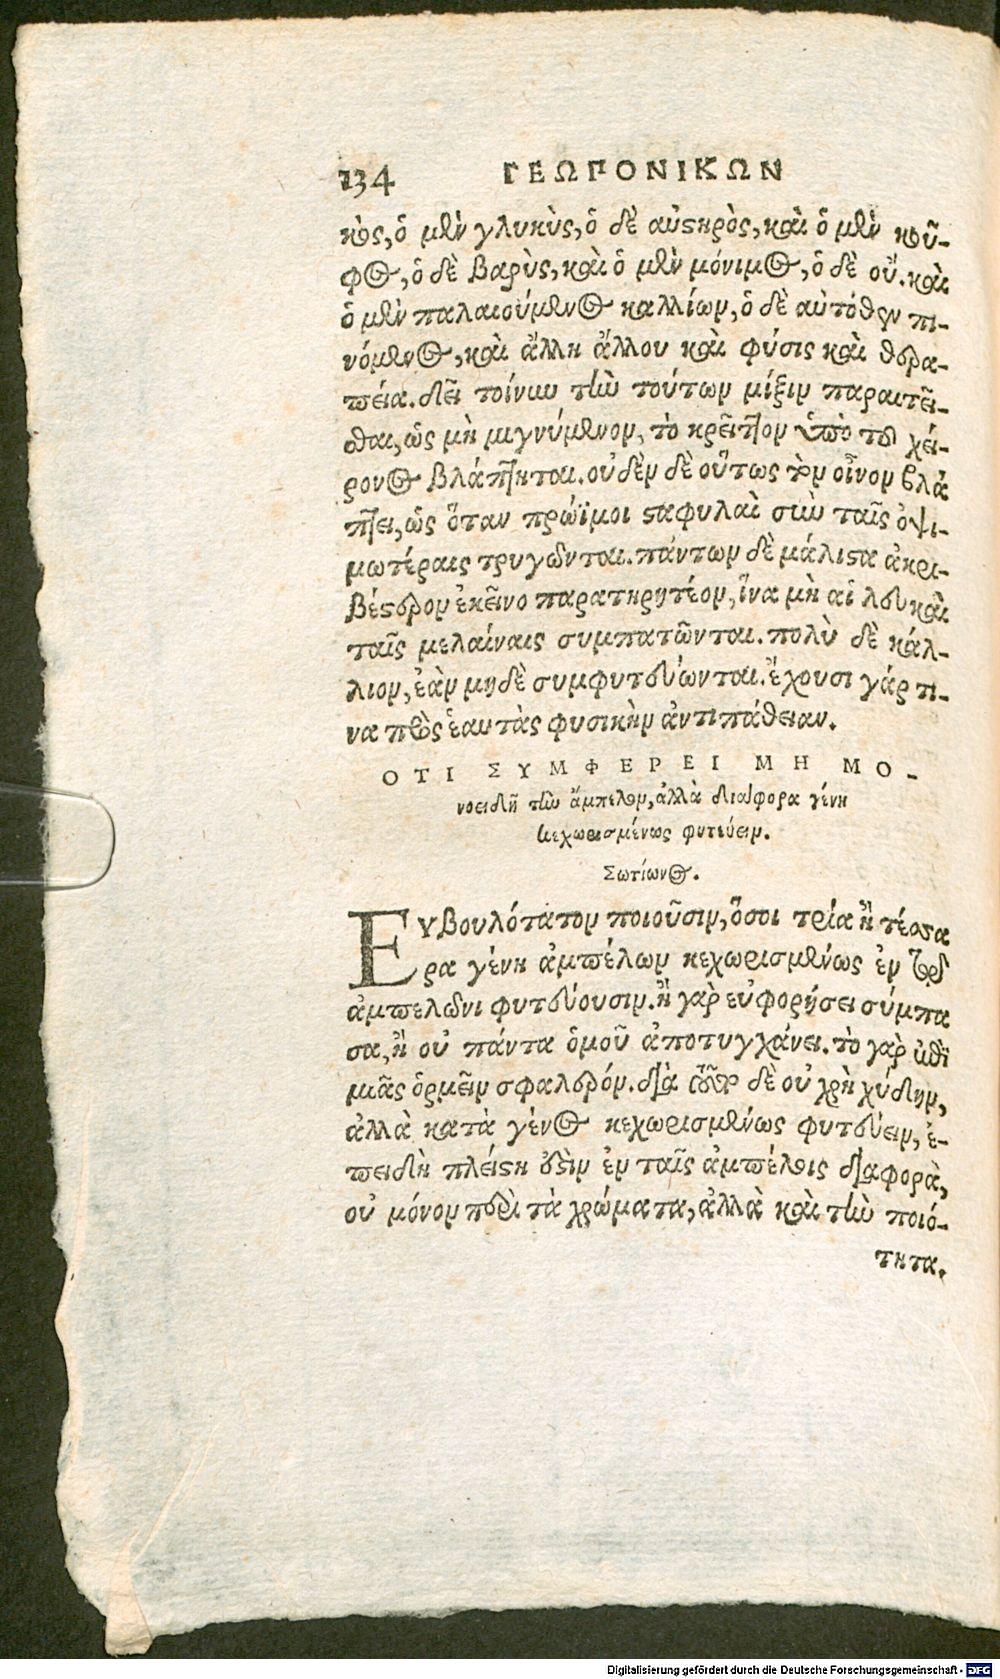 134 ΓΕΩΠΟΝΙΚΩΝ
κὸς, ὁ μὲν γλυκὺς, ὁ δὲ αὐϛηρὸς, καὶ ὁ μὲν κοῦ-
φος, ὁ δὲ βαρὺς, καὶ ὁ μὲν μόνιμος, ὁ δὲ οὔ. καὶ
ὁ μὲν παλαιούμενος καλλίων, ὁ δὲ αὐτόθεν πι-
νόμενος, καὶ ἄλλη ἄλλου καὶ φύσις καὶ θερα-
πεία. δεῖ τοίνυν τὴν τούτων μίξιν παραιτεῖ-
σθαι, ὡς μὴ μιγνύμενον, τὸ κρεῖττον ὑπὸ τοῦ χεί-
ρονος βλάπτηται. οὐδὲν δὲ οὕτως τὸν οἶνον βλά
πτει, ὡς ὅταν πρώϊμοι ϛαφυλαὶ σὺν ταῖς ὀψι-
μωτέραις τρυγῶνται. πάντων δὲ μάλιϛα ἀκρι-
βέϛερον ἐκεῖνο παρατηρητέον, ἵνα μὴ αἱ λευκαὶ
ταῖς μελαίναις συμπατῶνται. πολὺ δὲ κάλ-
λιον, ἐὰν μηδὲ συμφυτεύωνται. ἔχουσι γάρ τι-
να πρὸς ἑαυτὰς φυσικὴν ἀντιπάθειαν.
ΟΤΙ ΣΥΜΦΕΡΕΙ ΜΗ ΜΟ-
νοειδῆ τὴν ἄμπελον, ἀλλὰ διάφορα γένη
κεχωρισμένως φυτεύειν.
Σωτίωνος.
ΕΥβουλότατον ποιοῦσιν, ὅσοι τρία ἢ τέσσα
ρα γένη ἀμπέλων κεχωρισμένως ἐν τῷ
ἀμπελῶνι φυτεύουσιν. ἢ γὰρ εὐφορήσει σύμπα
σα, ἢ οὐ πάντα ὁμοῦ ἀποτυγχάνει. τὸ γὰρ ἐπὶ
μιᾶς ὁρμεῖν σφαλερόν. διὰ δὲ οὐ χρὴ χύδην,
ἀλλὰ κατὰ γένος κεχωρισμένως φυτεύειν, ἐ-
πειδὴ πλείϛη ἐϛὶν ἐν ταῖς ἀμπέλοις διαφορὰ,
οὐ μόνον περὶ τὰ χρώματα, ἀλλὰ καὶ τὴν ποιό-
τητα.
Digitalisierung gefördert durch die Deutsche Forschungsgemeinschaft - DFG